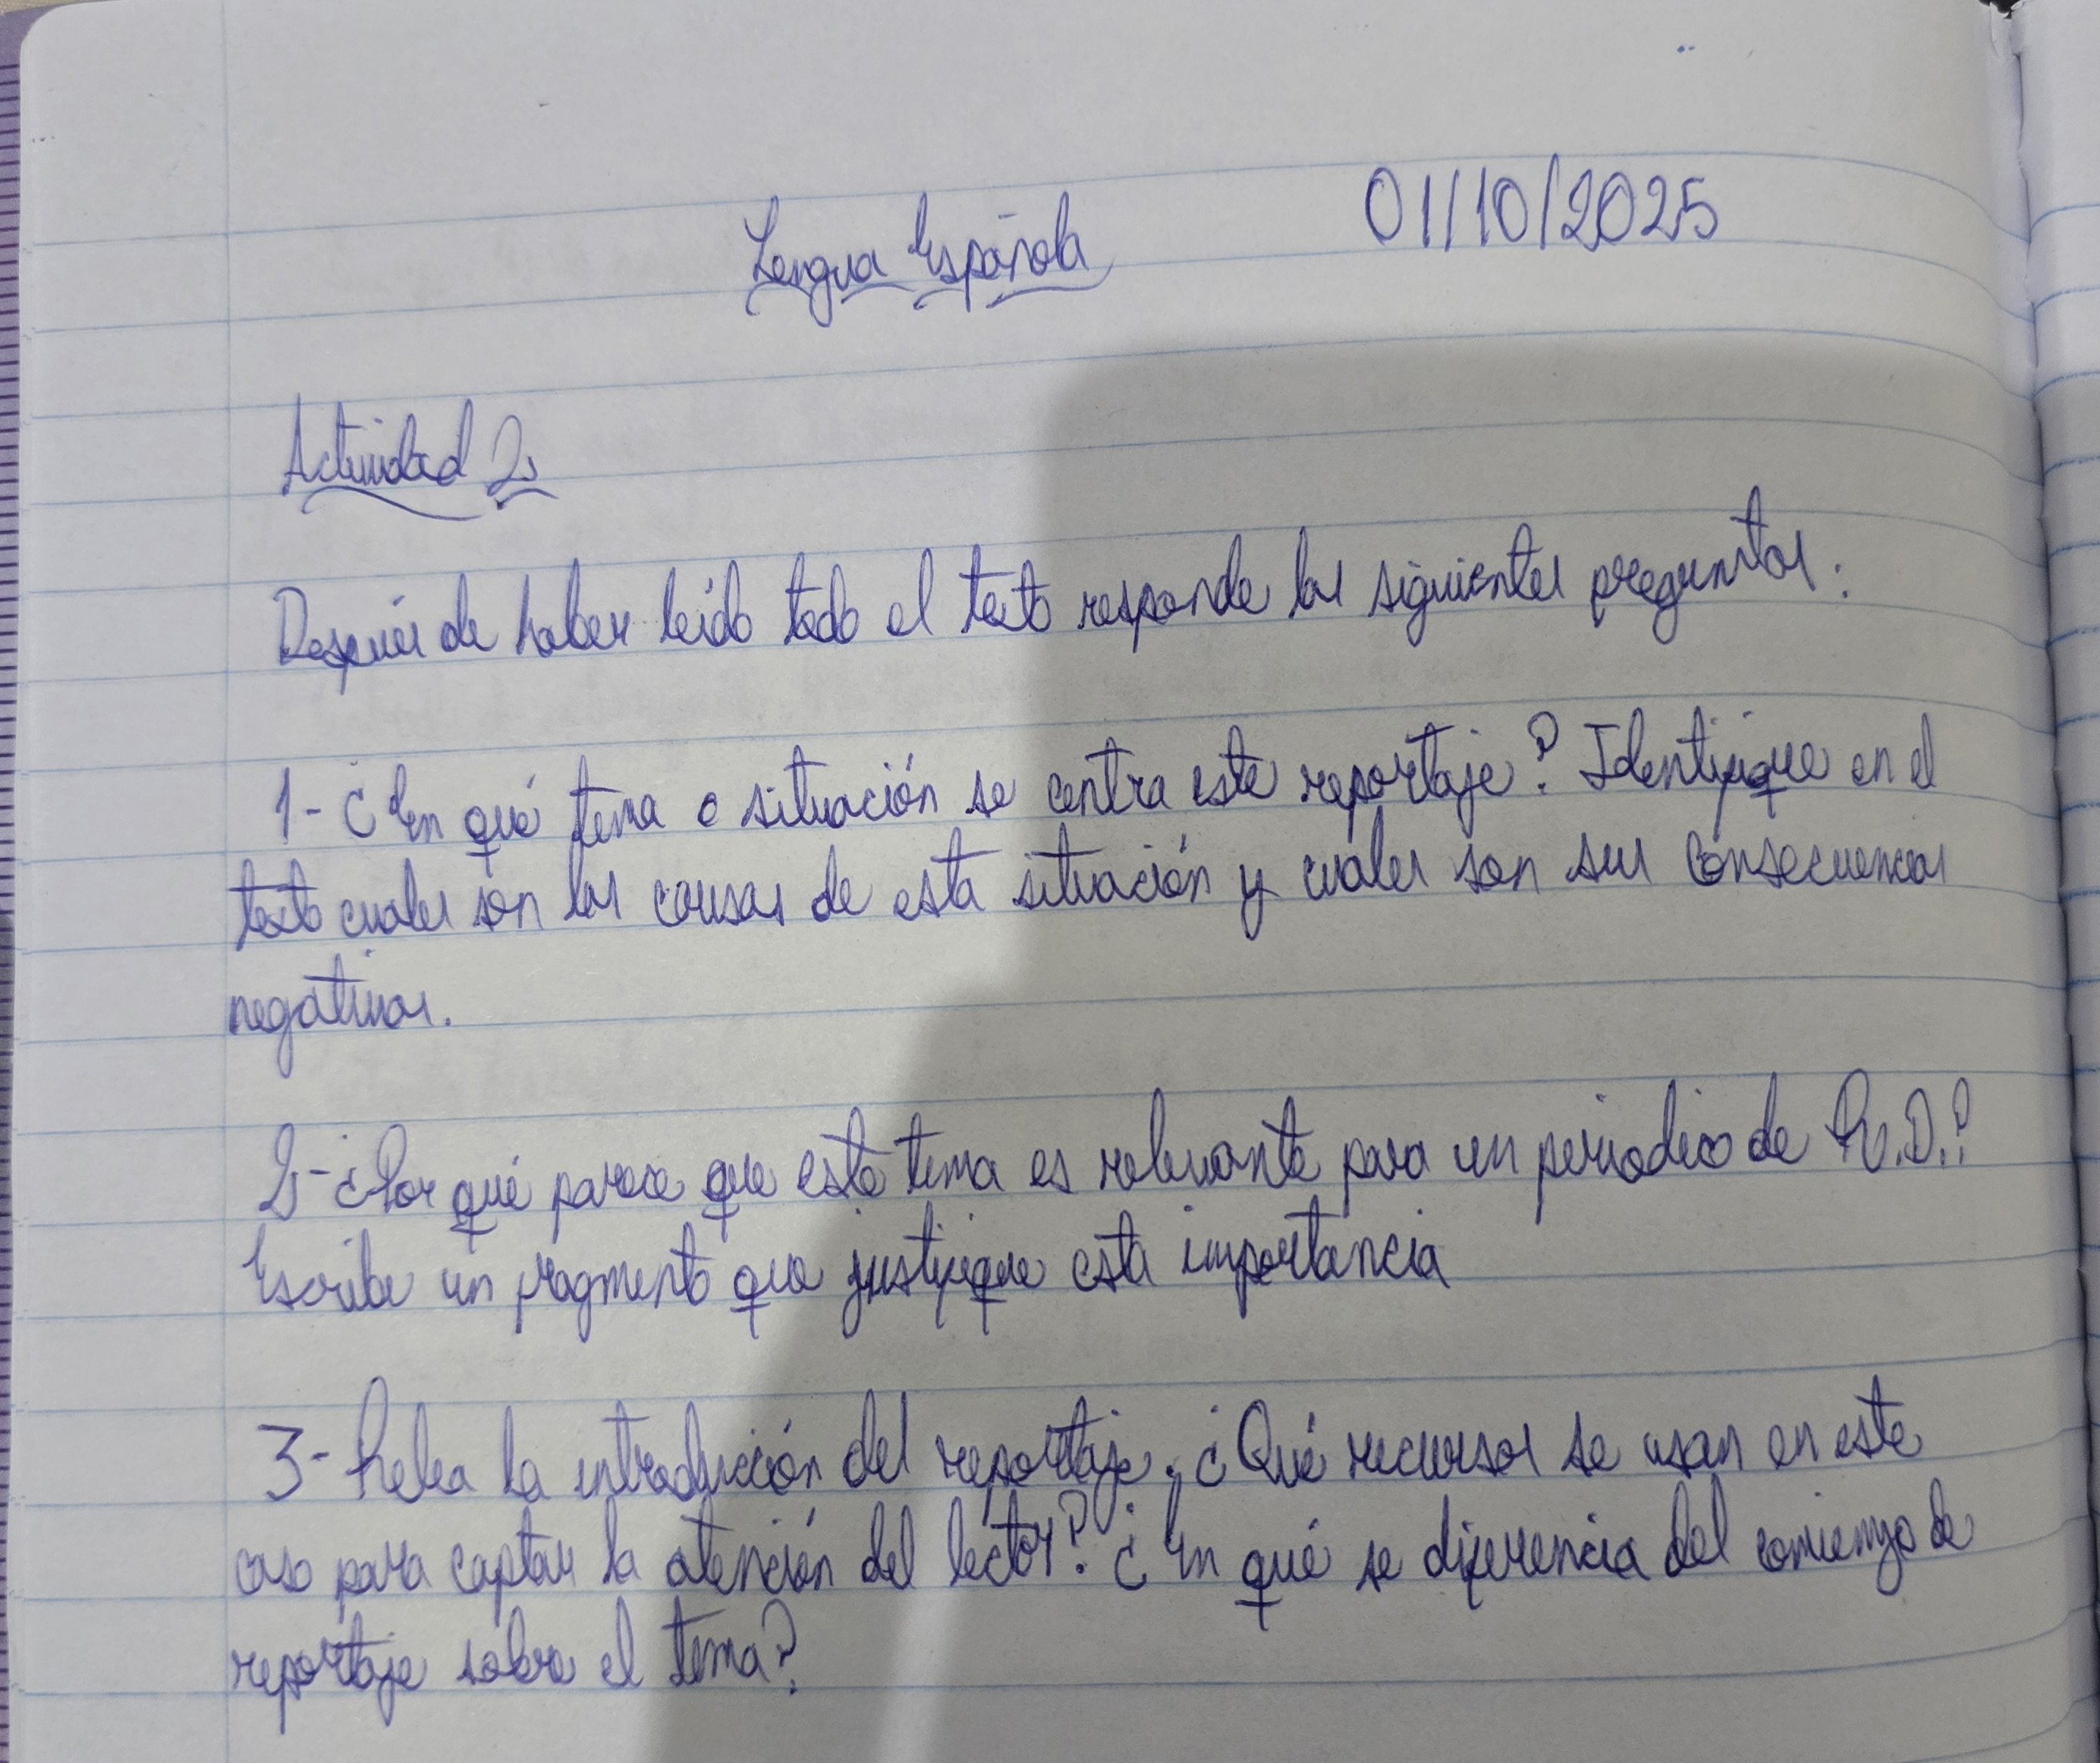 Lengua Española
01/10/2025
Actividad 2
Después de haber leído todo el texto responde las siguientes preguntas:
1- ¿En qué tema o situación se centra este reportaje? Identifique en el
texto cuales son las causas de esta situación y cuales son sus consecuencias
negativas.
2- ¿Por qué parece que este tema es relevante para un periodico de R.D.?
Escribe un fragmento que justifique esta importancia
3- Relea la introducción del reportaje. ¿Qué recursos se usan en este
caso para captar la atención del lector? ¿En qué se diferencia del comienzo de
reportaje sobre el tema?